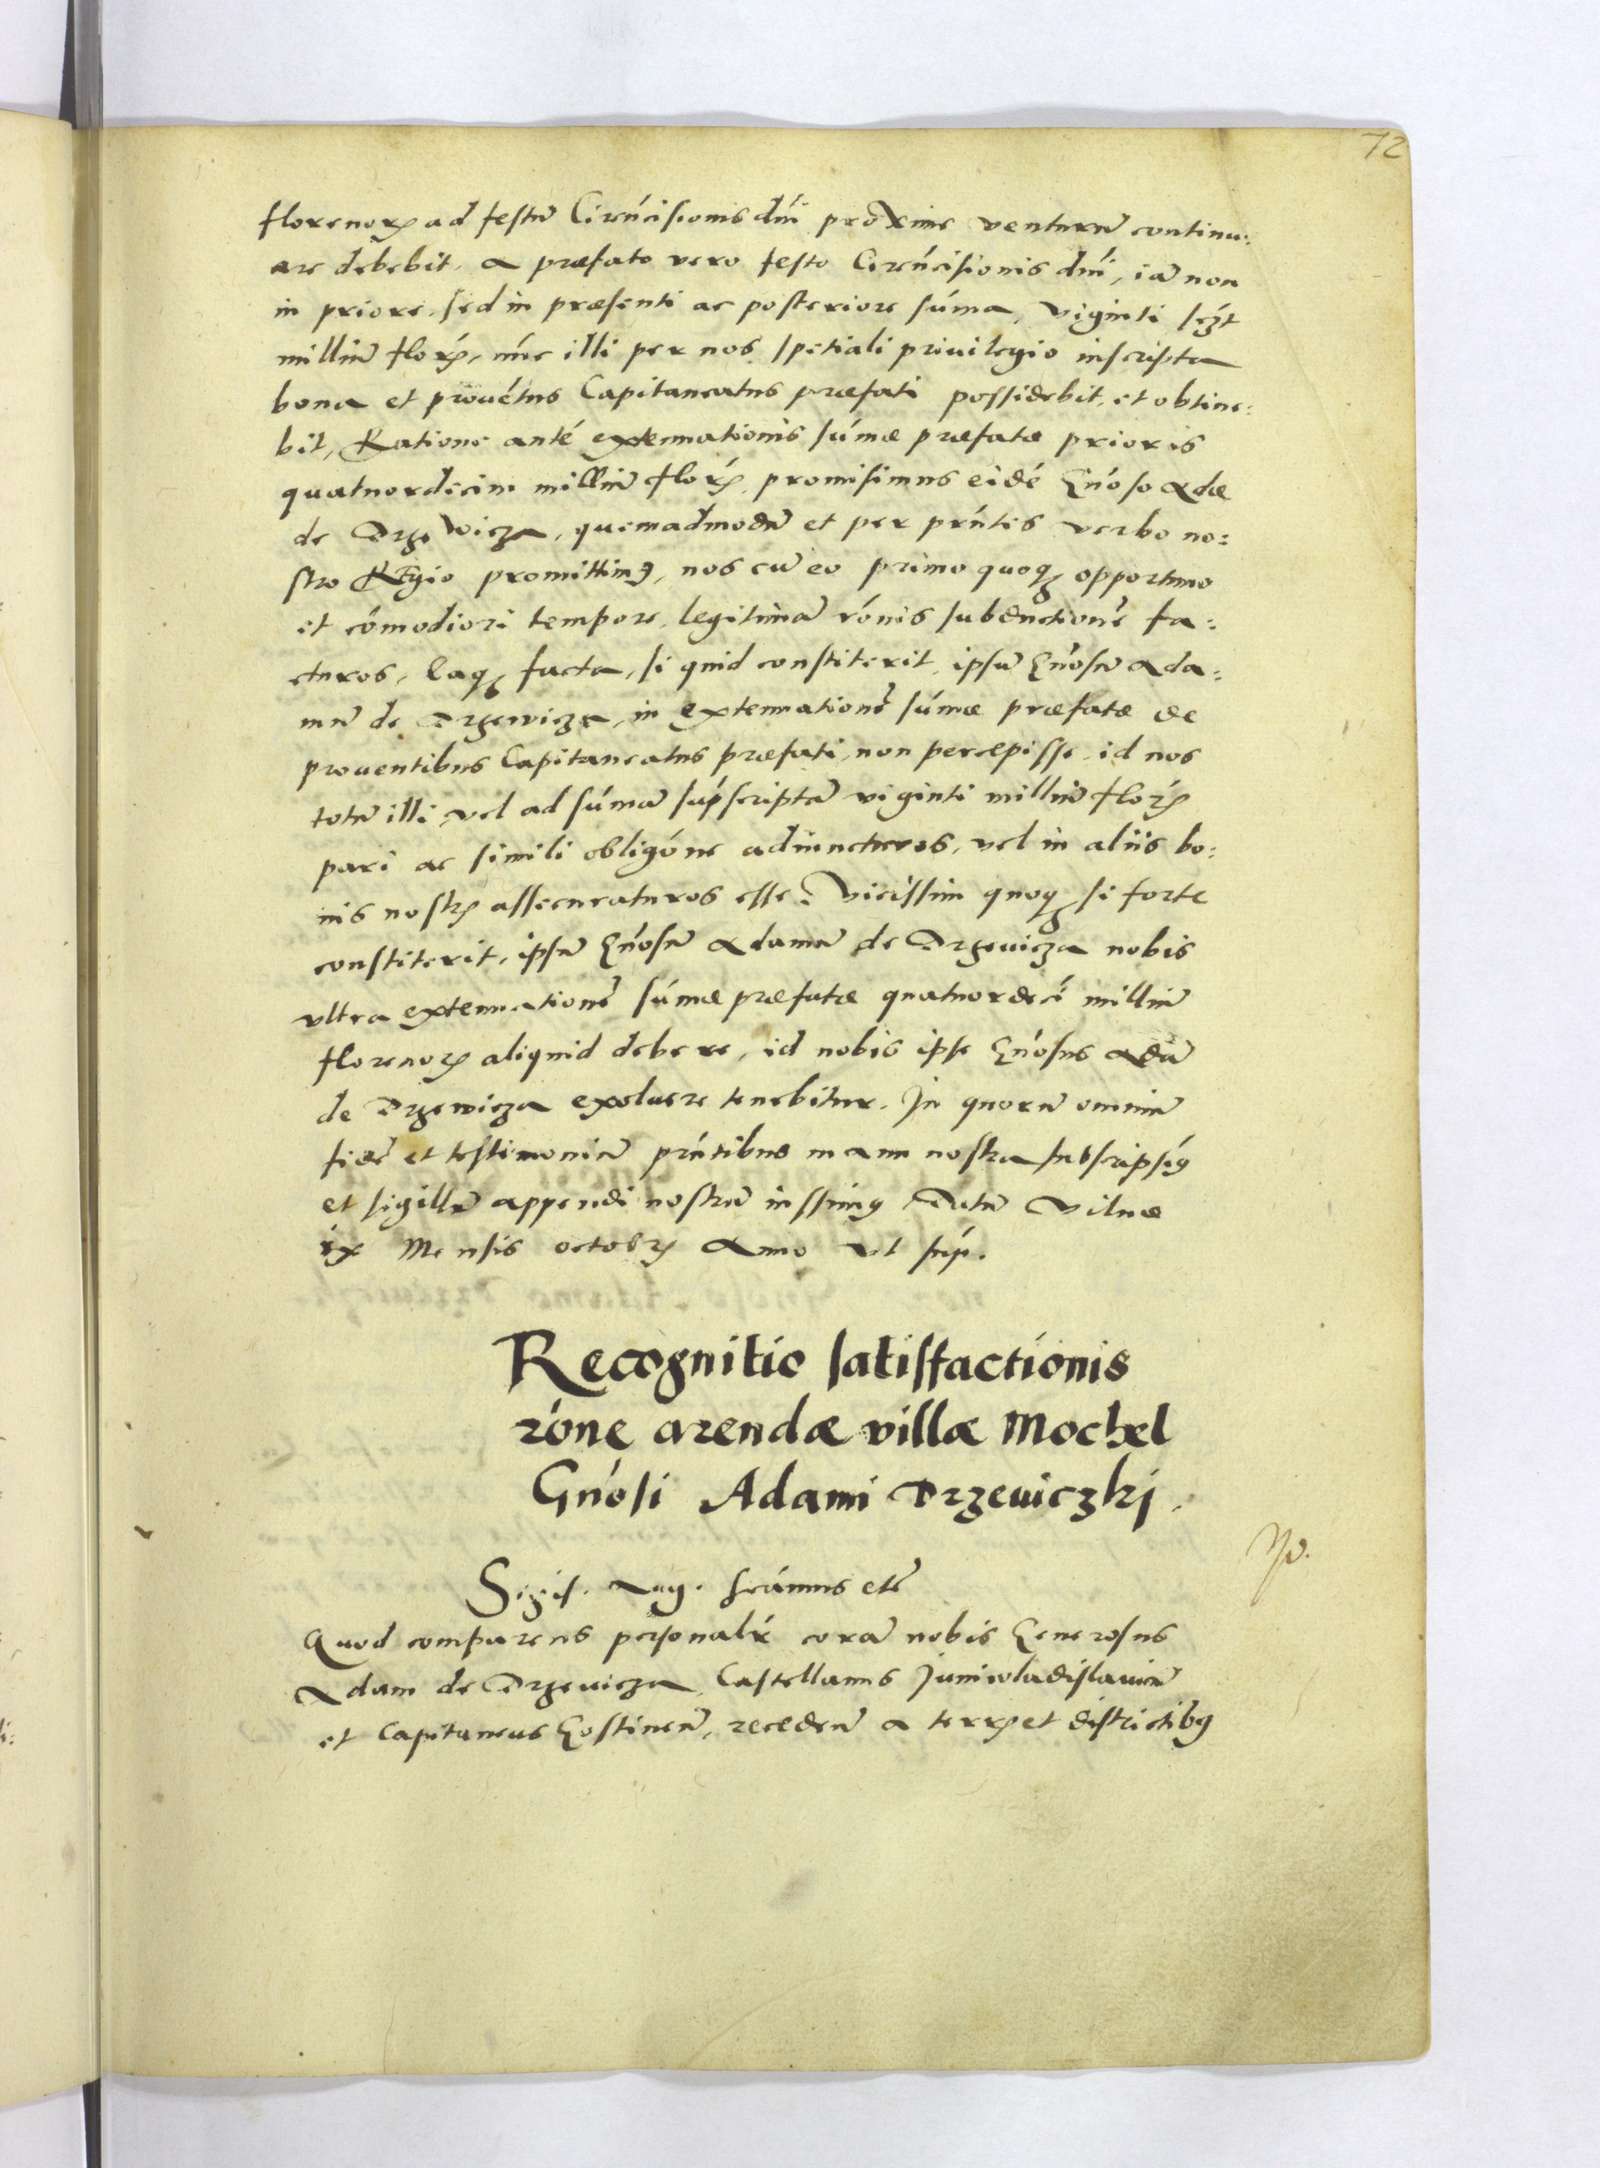 72
florenorꝝ ad festũ Circũcisionis dñi proxime venturũ continu:
are debebit. A præfato vero festo Circũcisionis dñi, iã non
in priore, sed in præsenti ac posteriore sũma, viginti sczt
milliũ florꝝ, nũc illi per nos spetiali privilegio inscripta
bona et provẽtus Capitaneatus præfati possidebit, et obtine:
bit, Ratione autẽ extenuationis sũmæ præfatæ prioris
quatuordecim milliũ florꝝ, promisimus eidẽ Gñoso Adæ
de Drzewicza, quemadmodũ et per pñtes verbo no:
stro Regio promittimꝰ, nos cũ eo primo quoqꝫ opportuno
et cõmodiori tempore, legitimã rõnis subductionẽ fa:
cturos, Eaqꝫ facta, si quid constiterit, ipsũ Gñosũ Ada:
mũ de Drzewicza, in extenuationẽ sũmæ præfatæ de
proventibus Capitaneatus præfati, non percepisse, id nos
totũ illi, vel ad sũmã suprascriptã viginti milliũ florꝝ
pari ac simili obligõne adiuncturos, vel in aliis bo:
nis nostrꝭ assecuraturos esse. Vicissim quoqꝫ si forte
constiterit, ipsũ Gñosũ Adamũ de Drzeuicza nobis
ultra extenuationẽ sũmæ præfatæ quatuordecĩ milliũ
florenorꝝ aliquid debere, id nobis ipse Gñosus Adã
de Drzewicza exoluere tenebitur. In quorũ omniũ
fidẽ et testimoniũ pñtibus manu nostra subscripsimꝰ
et sigillũ appendi nostrũ iussimꝰ Datũ Vilnæ
ix Mensis octobrꝭ Anno ut sup̃.
Recognitio satisfactionis
rõne arendæ villæ Mochel
Gñosi Adami Drzeuiczkj.
Sigis. Aug. Scãmus etc̃
Quod comparens personalr̃ corã nobis Generosus
Adam de Drzeuicza, Castellanus Juniuladislauieñ
et Capitaneus Gostineñ, recedeñ a terrꝭ et districtibꝰ